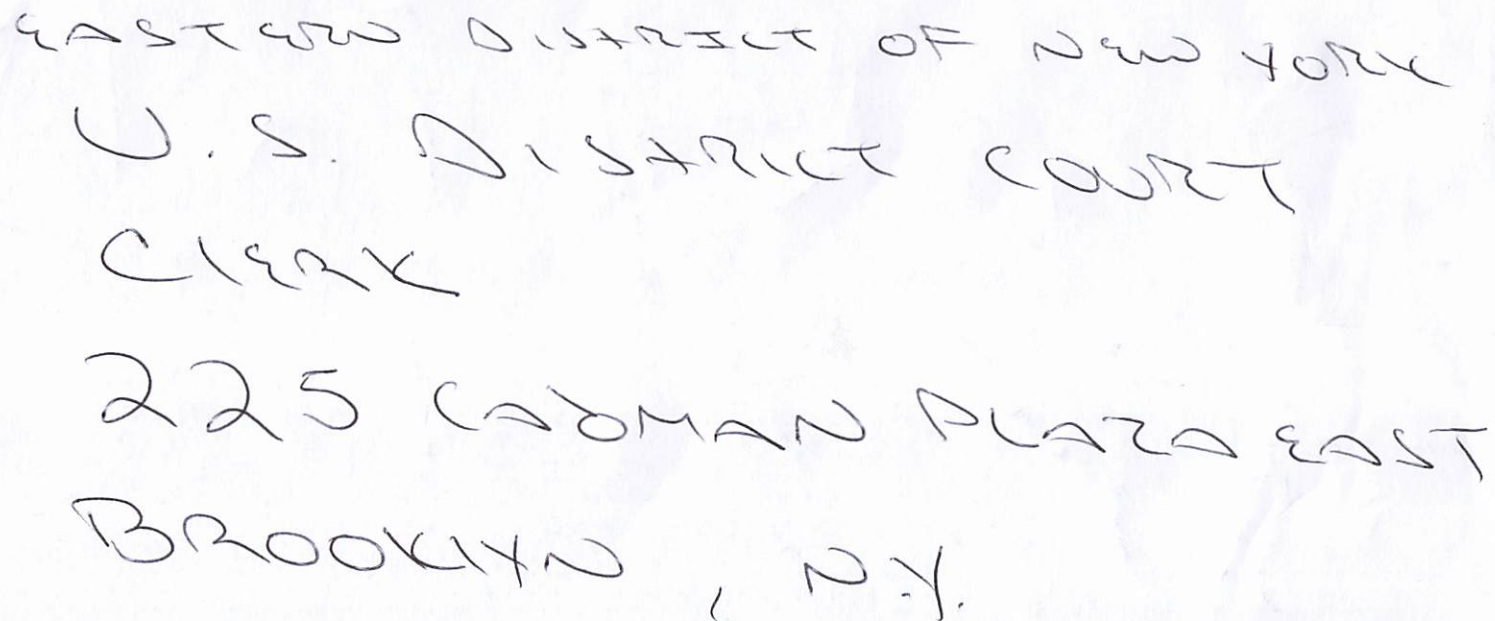 EASTERN DISTRICT OF NEW YORK
U.S. DISTRICT COURT
CLERK
225 CADMAN PLAZA EAST
BROOKLYN, N.Y.